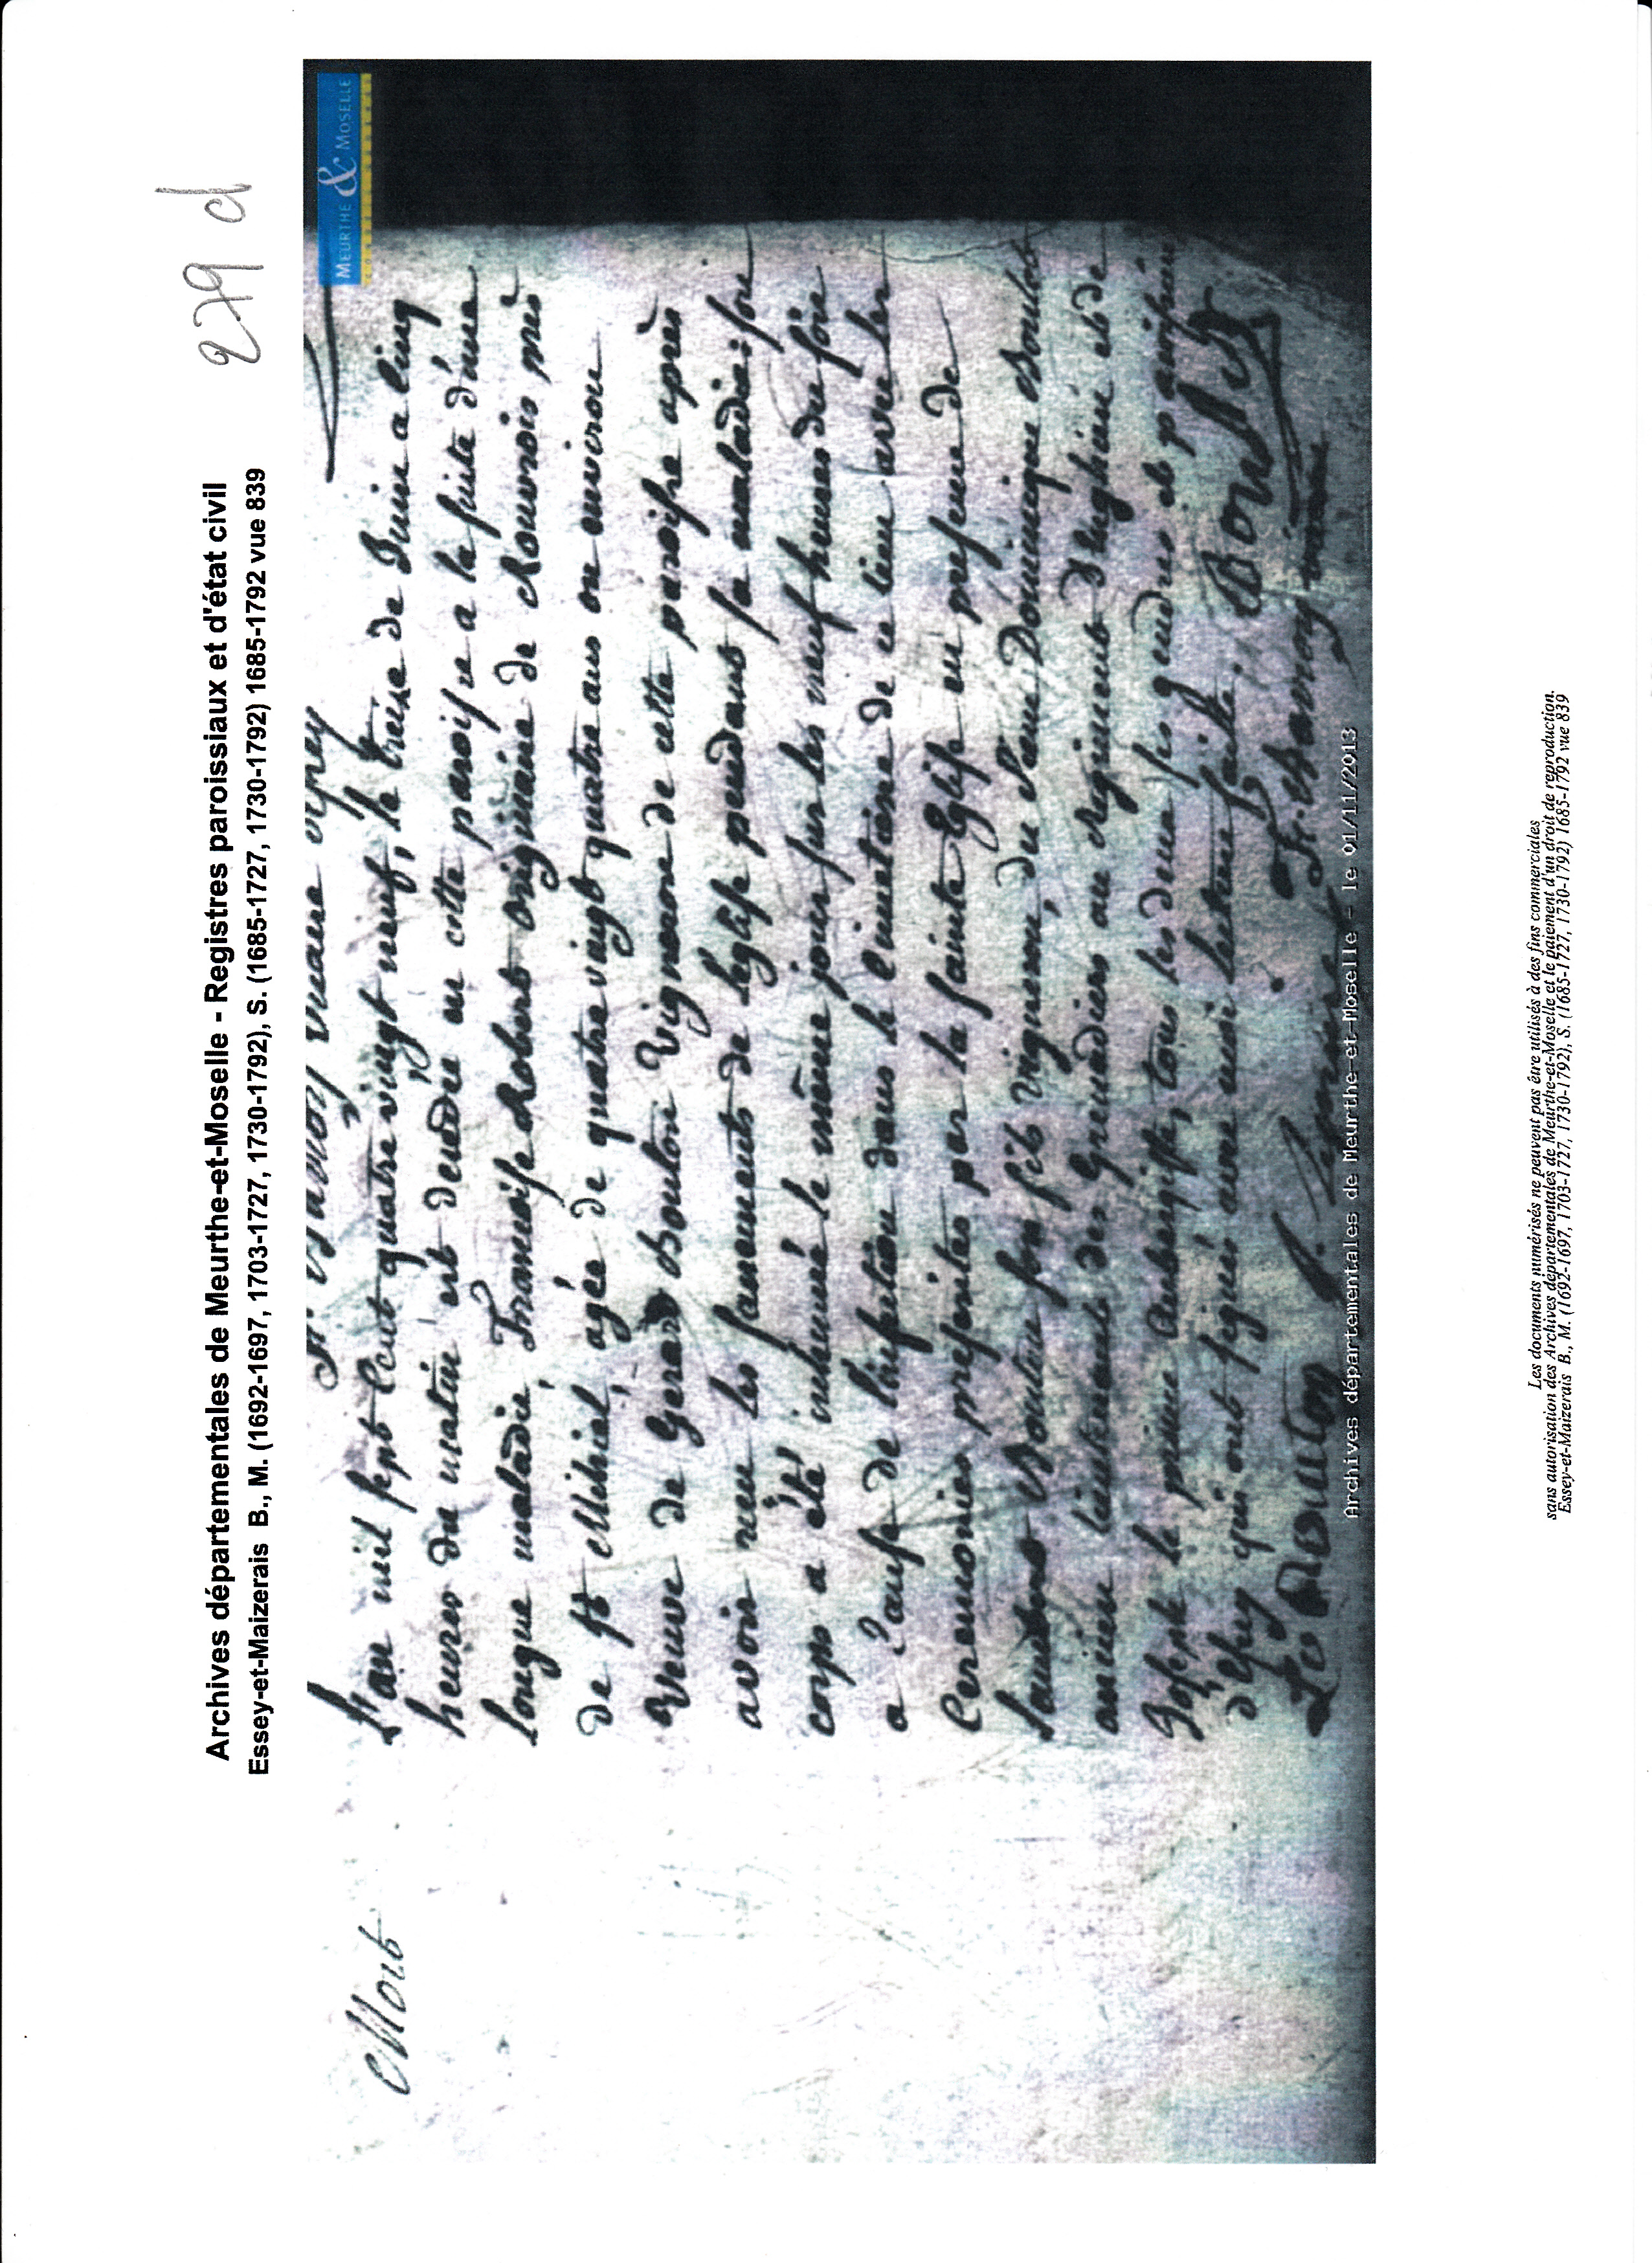 Archives départementales de Meurthe-et-Moselle - Registres paroissiaux et d'état civil
279 d
Essey-et-Maizerais B., M. (1692-1697, 1703-1727, 1730-1792), S. (1685-1727, 1730-1792) 1685-1792 vue 839
MEURTHE & MOSELLE
vicaire
Mort
L'an mil sept cent quatre vingt neuf, le treize de Juin a cinq
heures du matin est decedée en cette paroisse a la suite d'une
longue maladie, Françoise Robert originaire de Rouvrois près
de St Mihiel, agée de quatre vingt quatre ans ou environ
Veuve de Gerard Bouton Vigneron de cette paroisse après
avoir reçu les sacrements de l'eglise pendant sa maladie: son
corps a été inhumé le même jour sur les neuf heures du soir
a Cause de l'infection dans le Cimetière de ce lieu avec les
Ceremonies prescrites par la sainte Eglise en presence de
Bouton son fils vigneron, du Sieur Dominique Boulet
ancien lieutenant des Grenadiers au Regiment D'enghien et de
Joseph le jeune Aubergiste, tous les deux ses gendres et paroissiens
d'Essey qui ont signé avec moi lecture faite.
Bouton
J. le jeune
F. Harroy
Boulet
Archives départementales de Meurthe-et-Moselle - le 01/11/2013
Les documents numérisés ne peuvent pas être utilisés à des fins commerciales
sans autorisation des Archives départementales de Meurthe-et-Moselle et le paiement d'un droit de reproduction.
Essey-et-Maizerais B., M. (1692-1697, 1703-1727, 1730-1792), S. (1685-1727, 1730-1792) 1685-1792 vue 839